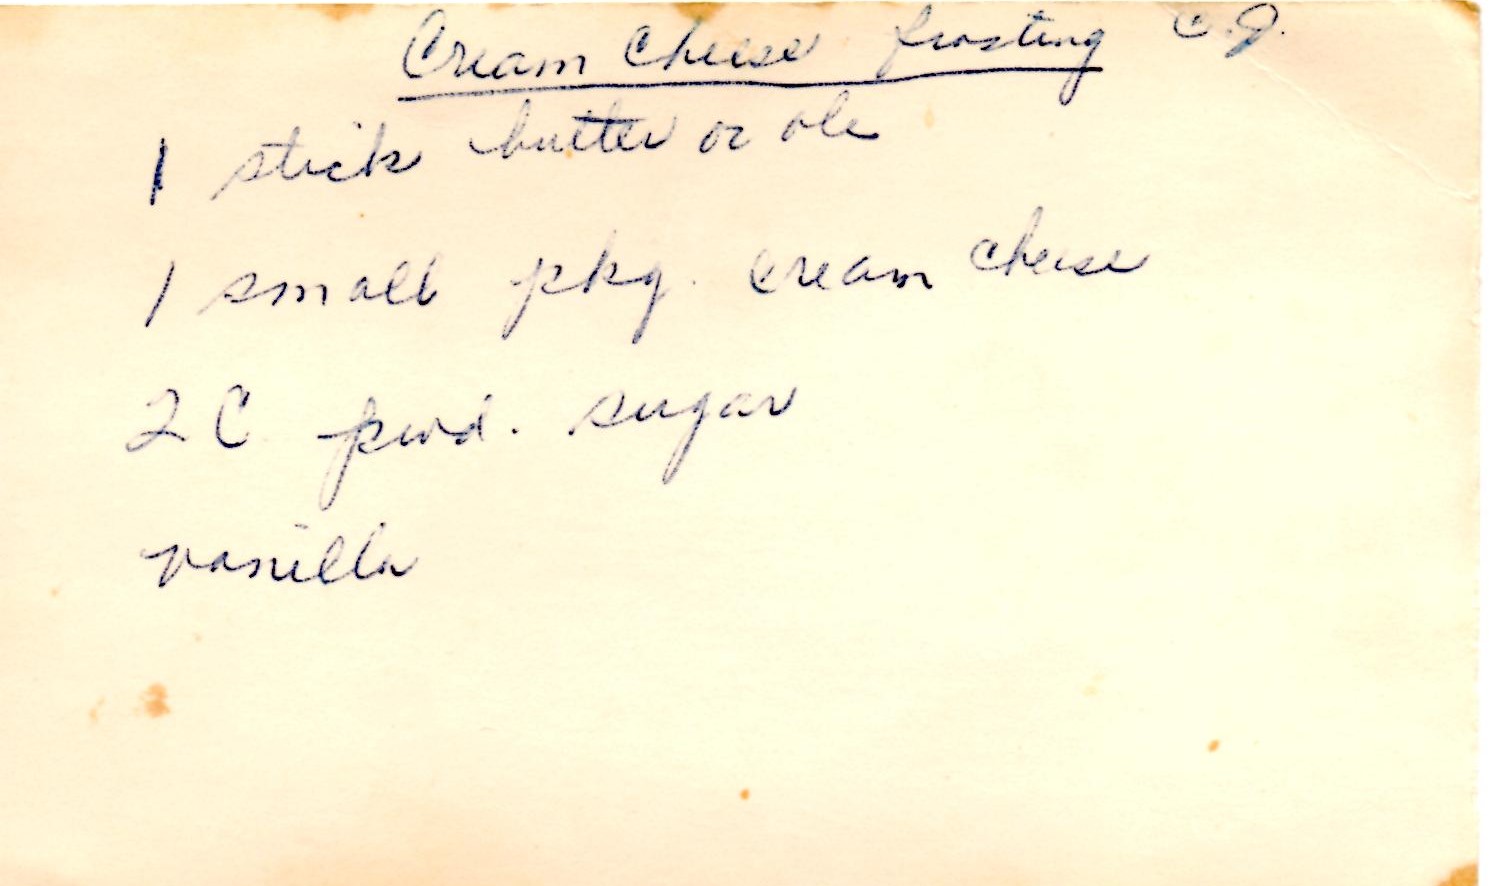 Cream Cheese frosting C.J.
1 stick butter or ole
1 small pkg. cream cheese
2 C pwd. sugar
vanilla